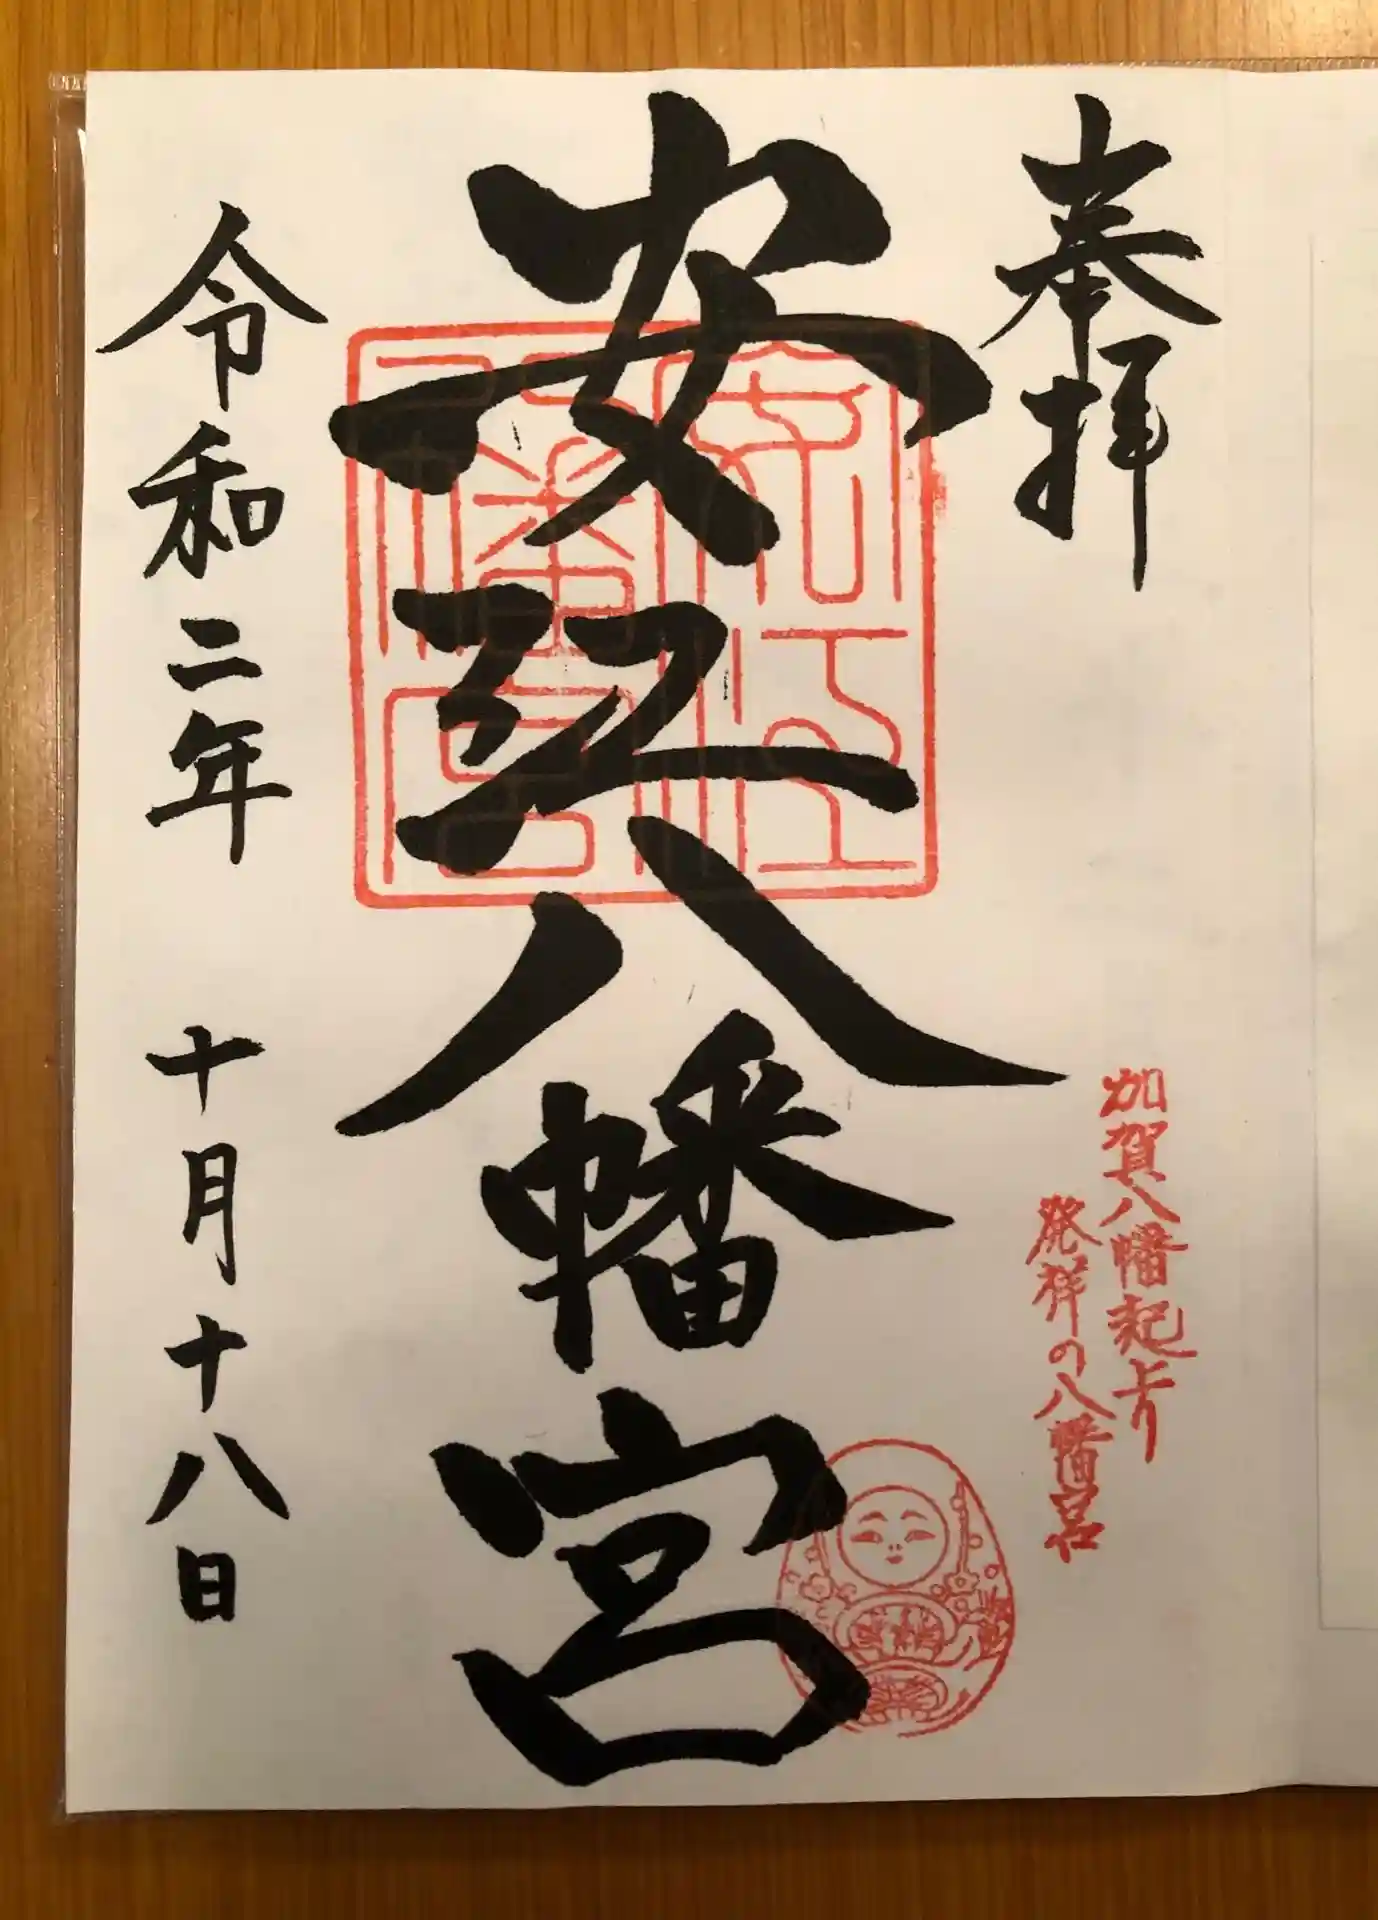 奉拝
加賀八幡起上り
発祥の八幡宮
安江八幡宮
安江
八幡宮
令和二年 十月十八日